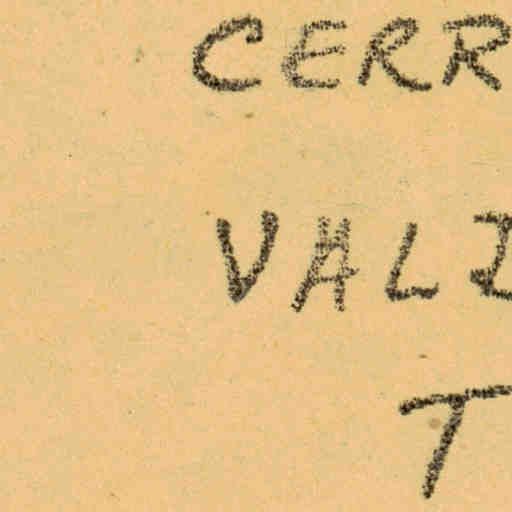 CERR
VALI
T